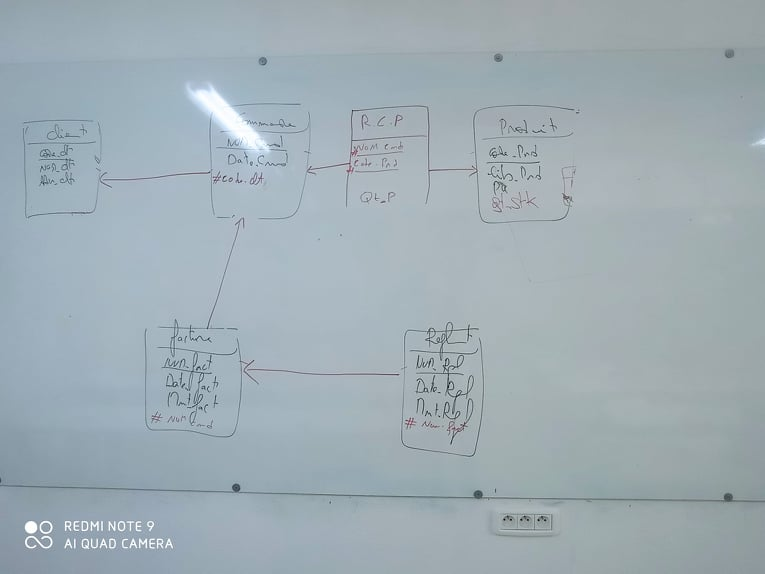 Client
Code_clt
Nom_clt
Adr_clt
Commande
Num_Cmd
Date_Cmd
#Code_clt
R.C.P
#Num_Cmd
#Code_Prd
Qt_P
Produit
Code_Prd
Lib_Prd
PU
Qt_stk
facture
Num_fact
Date_fact
Mnt_fact
# Num_Cmd
Reglmt
Num_Rgl
Date_Rgl
Mnt_Rgl
# Num_fact
REDMI NOTE 9
AI QUAD CAMERA